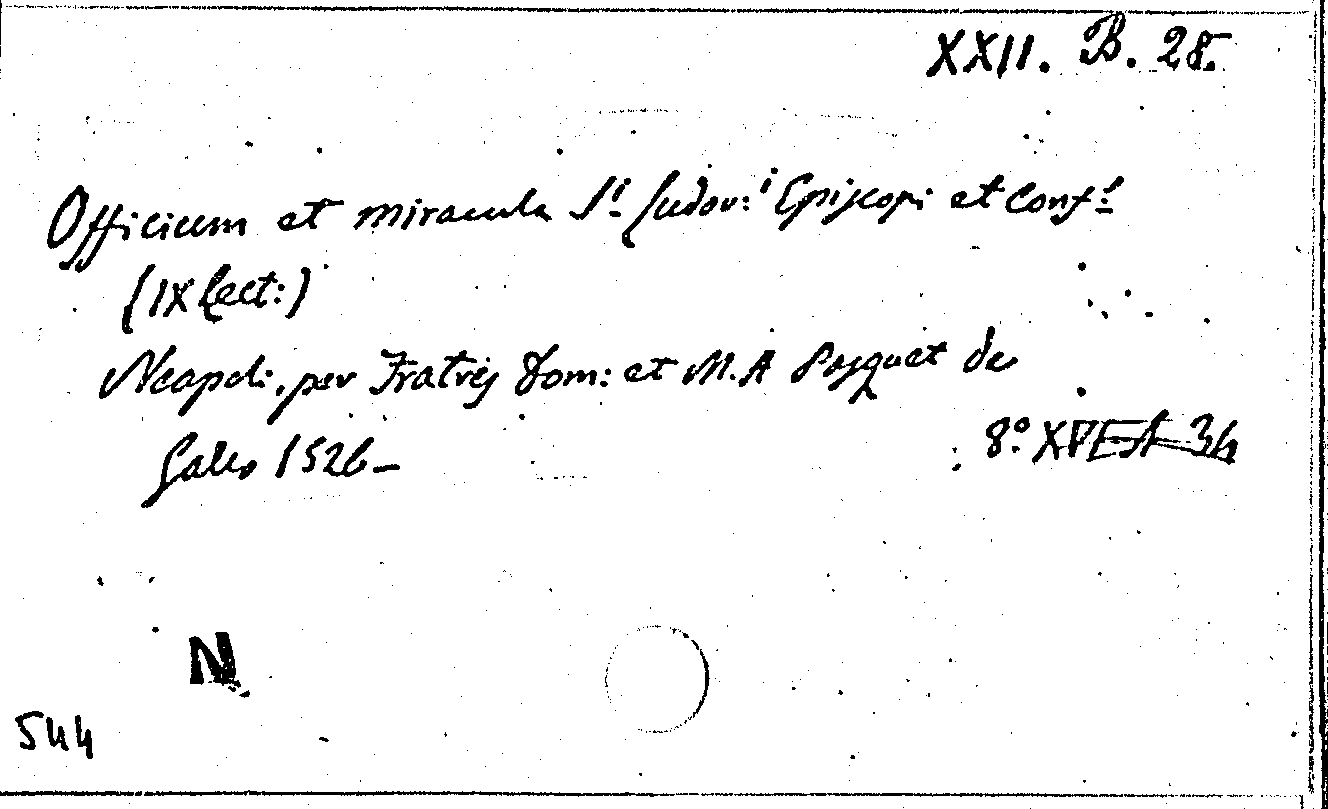 XXII. B. 28.
Officium et miracula S.i Ludov:i Episcopi et Conf.s
(IX Lect:)
Neapoli, per Fratres Dom: et M.A Pasquet de
Gallo 1526 –
8.o XVI A 34
N
544